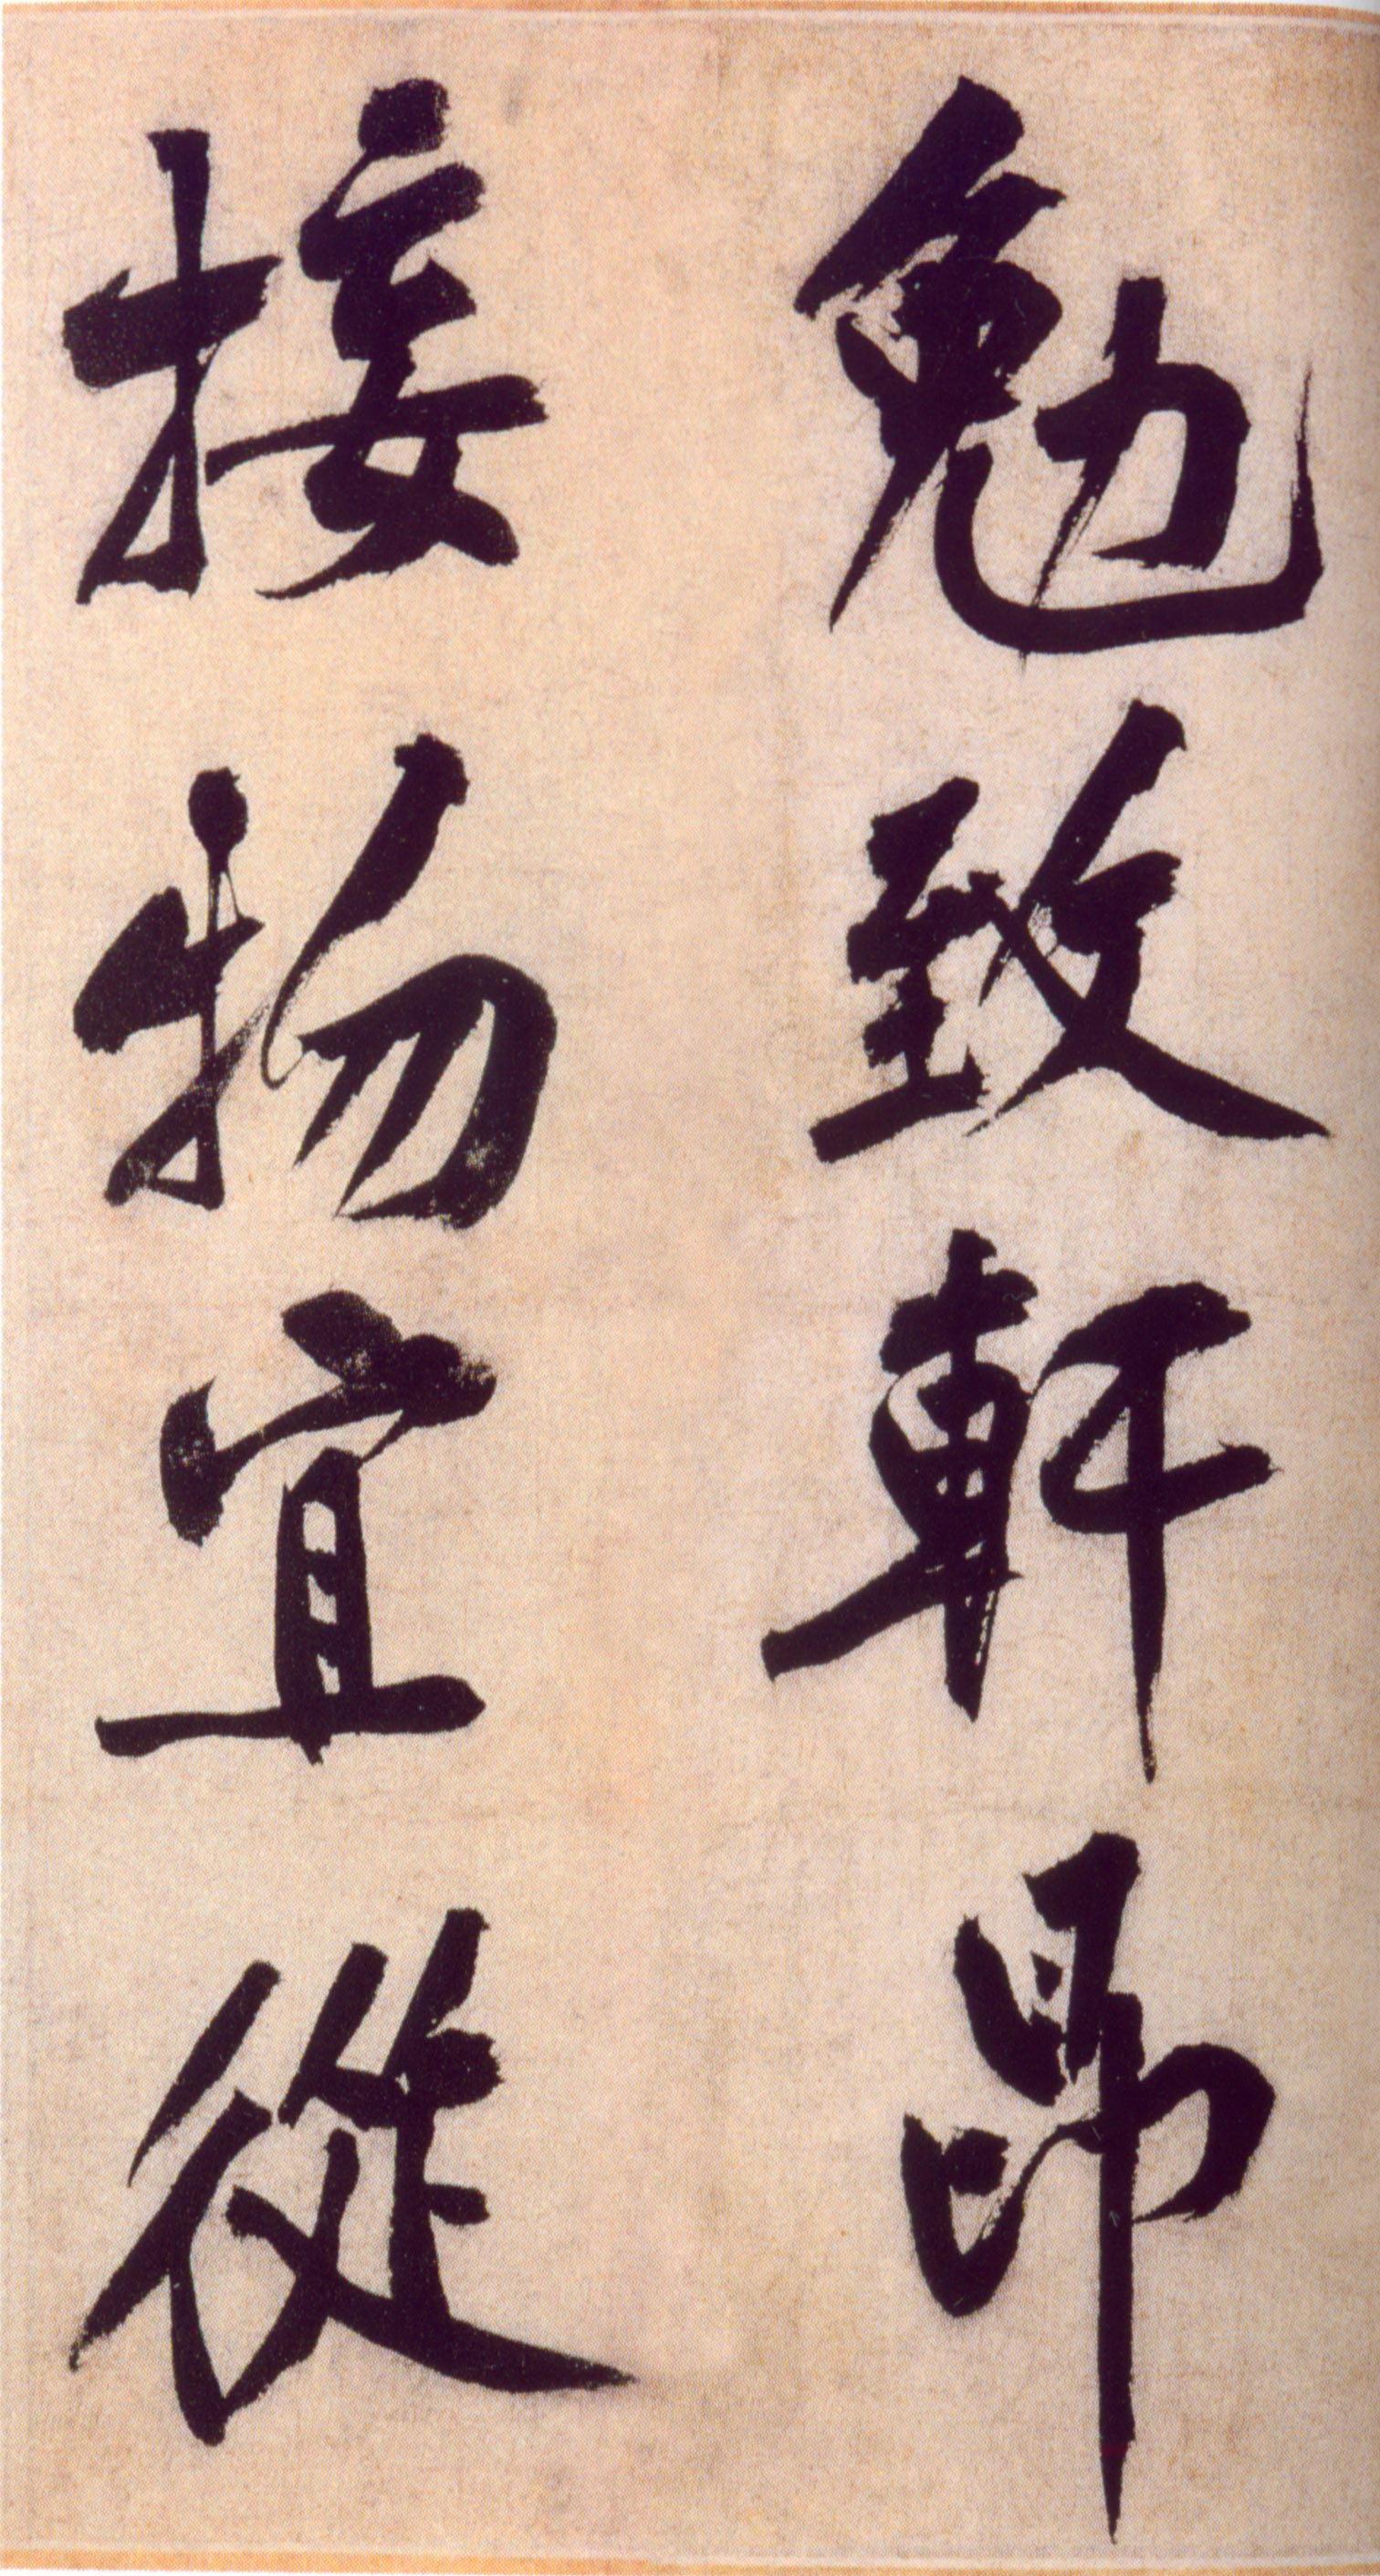 勉致軒昂
接物宜從